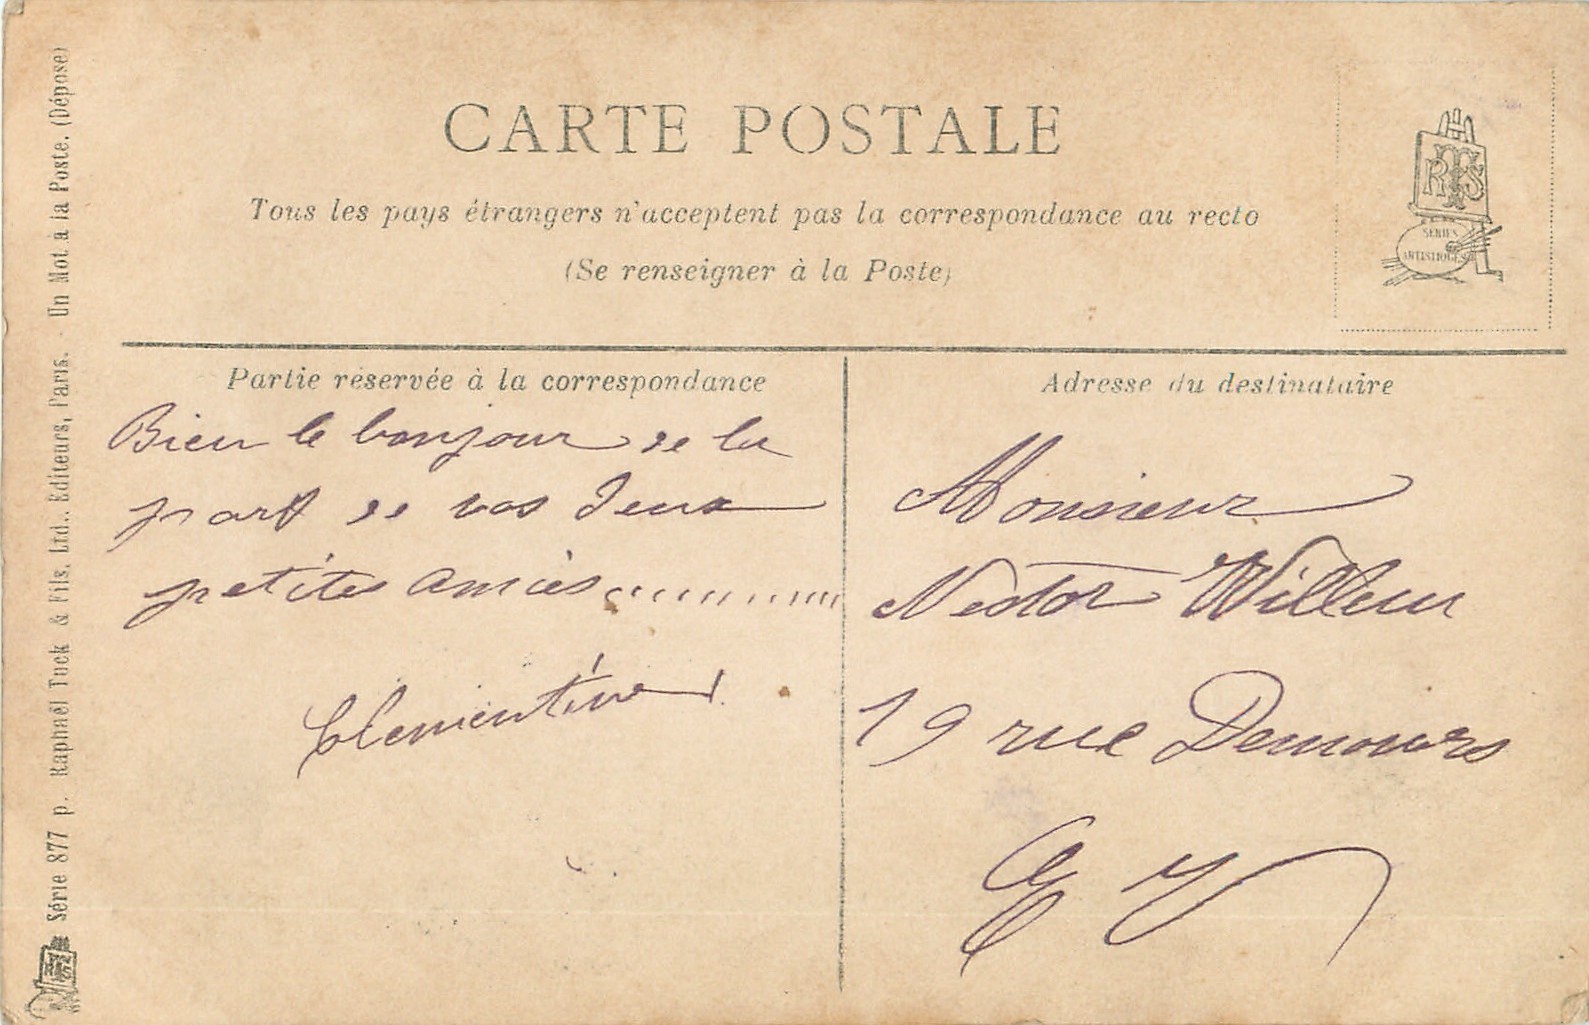 CARTE POSTALE
Tous les pays étrangers n'acceptent pas la correspondance au recto
(Se renseigner à la Poste)
RTS
SÉRIES
ARTISTIQUES
Partie réservée à la correspondance
Bien le bonjour de la
part de vos deux
petites amies
Clementine
Adresse du destinataire
Monsieur
Nestor Willem
19 rue Demours
E V
Série 877 p. Raphaël Tuck & Fils, Ltd., Editeurs, Paris. - Un Mot à la Poste. (Déposé)
RTS